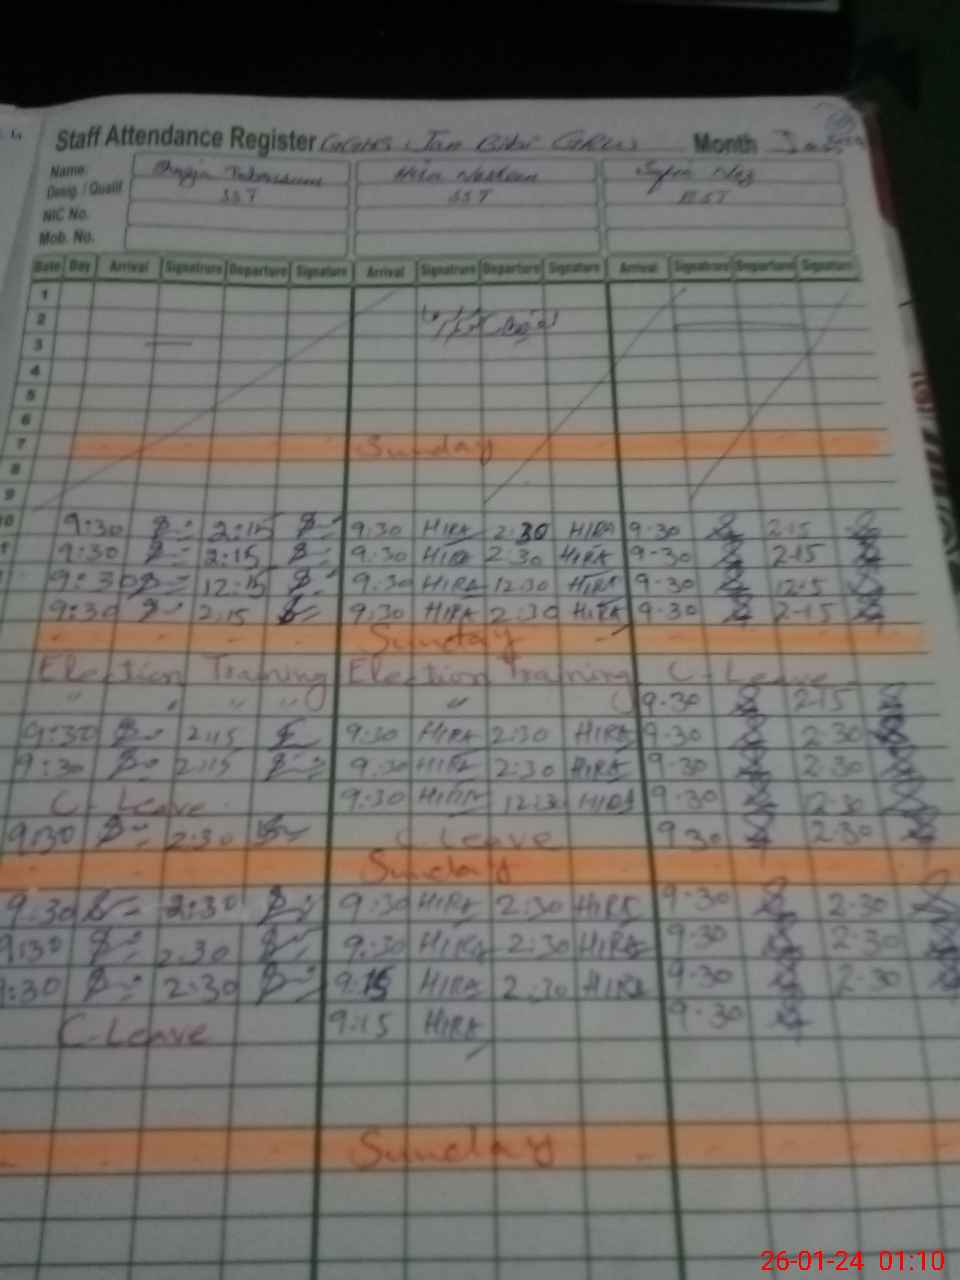 Staff Attendance Register Month
Name
Desig. / Qualif SST SST EST
NIC No.
Mob. No.
Date Day Arrival Signatrure Departure Signature Arrival Signatrure Departure Signature Arrival Signatrure Departure Signature
1
2
3
4
5
6
7 Sunday
8
9
10 9:30 2:15 9:30 HIRA 2:30 HIRA 9-30 2-15
9:30 2:15 9:30 HIRA 2:30 HIRA 9-30 2-15
9:30 12:15 9:30 HIRA 12:30 HIRA 9-30 12-15
9:30 2:15 9:30 HIRA 2:30 HIRA 9-30 2-15
Sunday
Election Training Election Training C-Leave
" " " " " 9-30 2-15
9:30 2:15 9:30 HIRA 2:30 HIRA 9-30 2-30
9:30 2:15 9:30 HIRA 2:30 HIRA 9-30 2-30
C-Leave 9:30 HIRA 12:30 HIRA 9-30 12-30
9:30 2:30 C Leave 9-30 2-30
Sunday
9:30 2:30 9:30 HIRA 2:30 HIRA 9-30 2-30
9:30 2:30 9:30 HIRA 2:30 HIRA 9-30 2-30
9:30 2:30 9:15 HIRA 2:30 HIRA 9-30 2-30
C-Leave 9:15 HIRA 9-30
Sunday
26-01-24 01:10